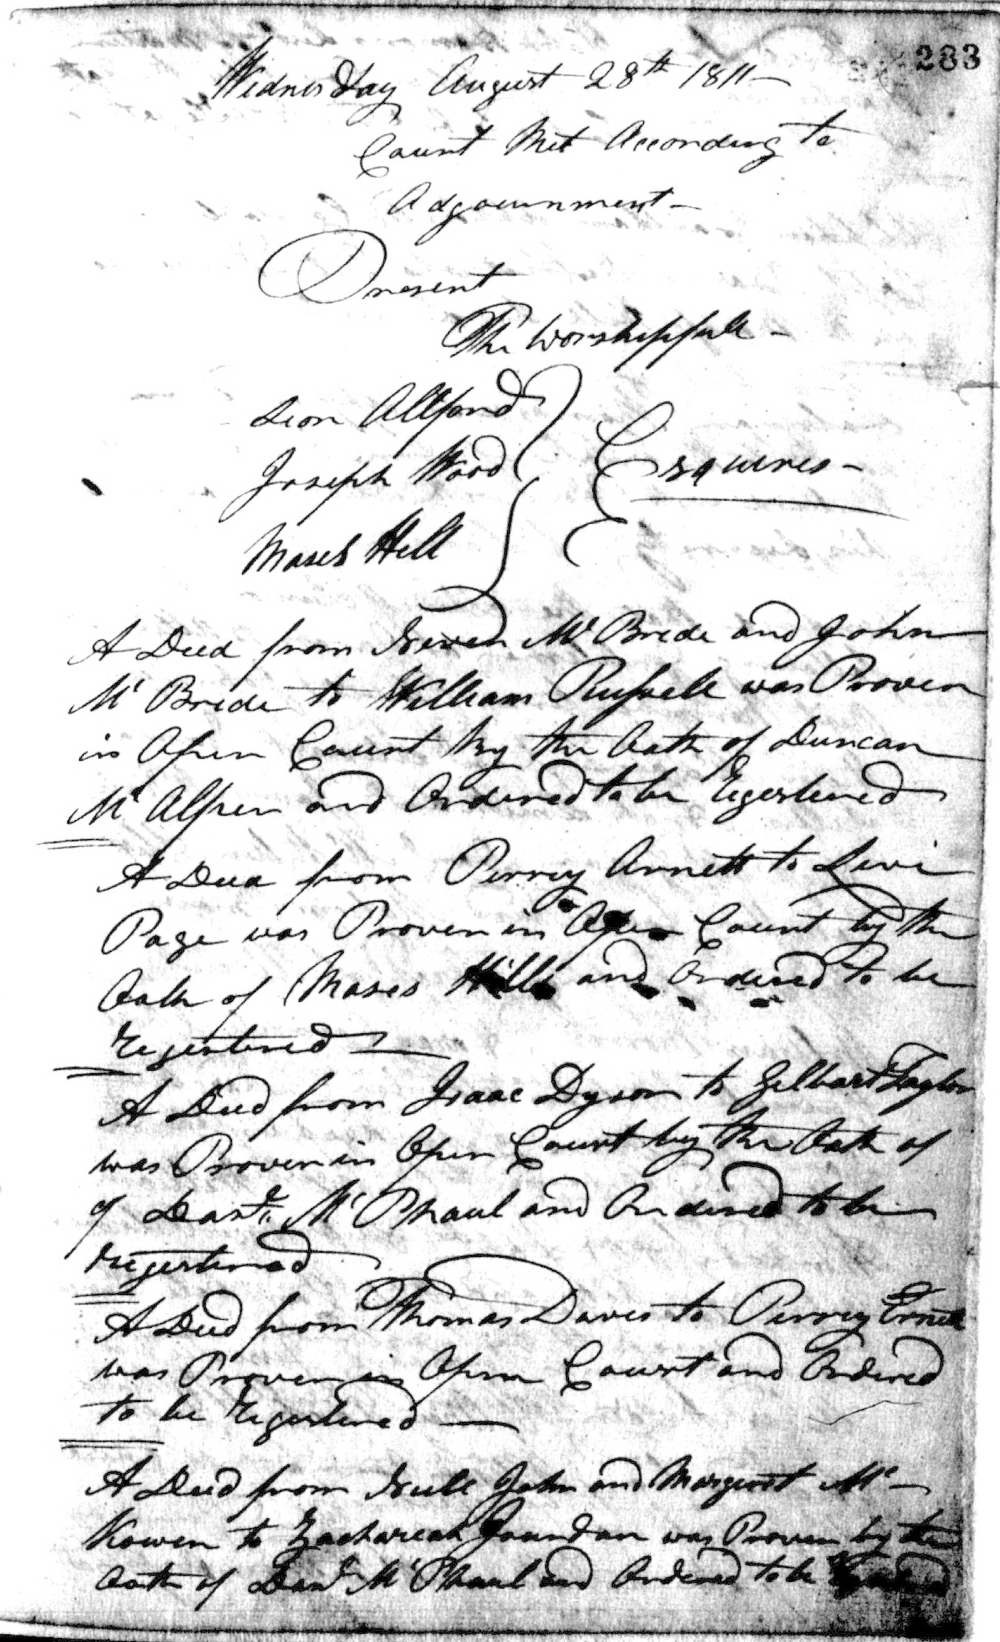 283
Wednesday August 28th 1811—
Court Met According to
Adgournment—
Present
The Worshipfull—
Sion Alford
Joseph Wood
Esquires—
Moses Hill
A Deed from Neven Mc Bride and John
Mc Bride to William Russell was Proven
in Open Court by the Oath of Duncan
Mc Alpen and Ordered to be Regestered
A Deed from Perrey Arnett to Levi
Page was Proven in Open Court by the
Oath of Moses Hill and Ordered to be
regestered—
A Deed from Isaac Dyson to Gilbart Taylor
was Proven in Open Court by the Oath of
of Danl. Mc Phaul and Ordered to be
regestered
A Deed from Thomas Daves to Perrey Ernett
was Proven in Open Court and Ordered
to be Regestered—
A Deed from Neill John and Margaret Mc—
Kowen to Zachariah Jourdan was Proven by the
Oath of Danl Mc Phaul and Ordered to be